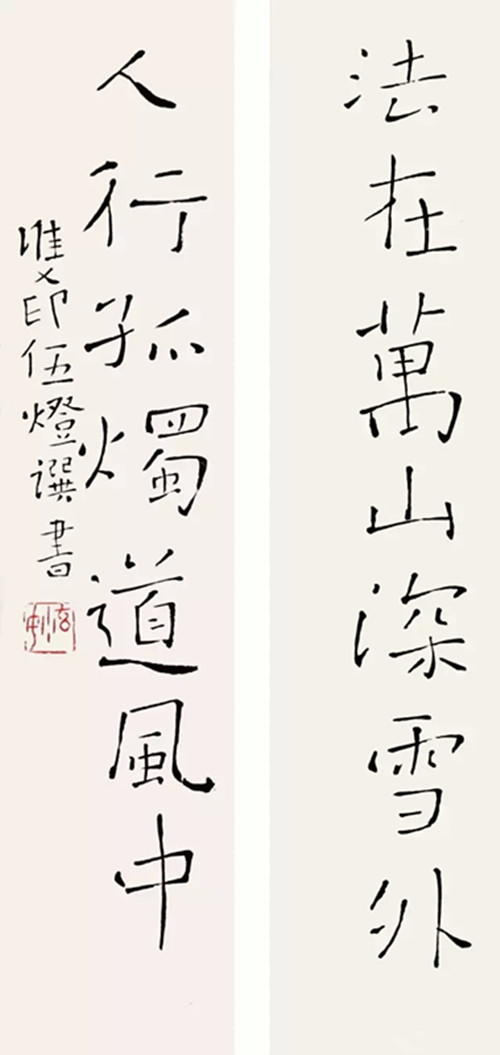 法在萬山深雪外
人行孤燭道風中
印伍燈譔書